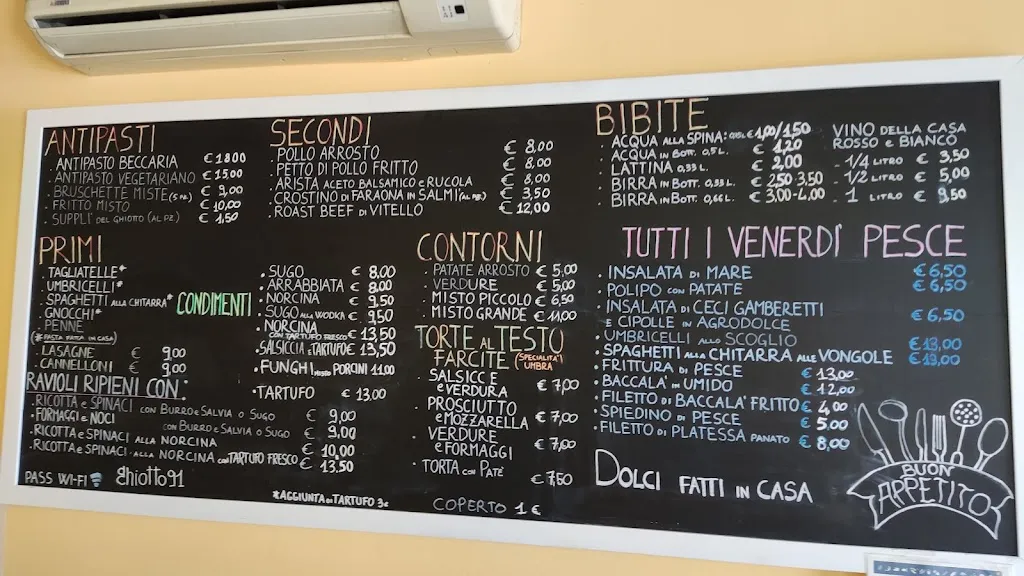 ANTIPASTI
. ANTIPASTO BECCARIA € 1800
. ANTIPASTO VEGETARIANO € 1500
. BRUSCHETTE MISTE (5 PZ.) € 9,00
. FRITTO MISTO € 10,00
. SUPPLI' DEL GHIOTTO (AL PZ.) € 1,50
SECONDI
. POLLO ARROSTO € 8,00
. PETTO DI POLLO FRITTO € 8,00
. ARISTA ACETO BALSAMICO E RUCOLA € 8,00
. CROSTINO DI FARAONA IN SALMÌ (AL PZ.) € 3,50
. ROAST BEEF DI VITELLO € 12,00
BIBITE
. ACQUA ALLA SPINA: € 1,00/1,50
. ACQUA IN BOTT. 0,5 L. € 1,20
. LATTINA 0,33 L. € 2,00
. BIRRA IN BOTT. 0,33 L. € 2,50-3,50
. BIRRA IN BOTT. 0,66 L. € 3,00-4,00
VINO DELLA CASA
ROSSO E BIANCO
. 1/4 LITRO € 3,50
. 1/2 LITRO € 5,00
. 1 LITRO € 9,50
PRIMI
. TAGLIATELLE*
. UMBRICELLI*
. SPAGHETTI ALLA CHITARRA*
. GNOCCHI*
. PENNE
(*PASTA FATTA IN CASA)
. LASAGNE € 9,00
. CANNELLONI € 9,00
CONDIMENTI
. SUGO € 8,00
. ARRABBIATA € 8,00
. NORCINA € 9,50
. SUGO ALLA WODKA € 9,50
. NORCINA CON TARTUFO FRESCO € 13,50
. SALSICCIA E TARTUFO € 13,50
. FUNGHI MISTO PORCINI 11,00
. TARTUFO € 13,00
RAVIOLI RIPIENI CON:
. RICOTTA E SPINACI CON BURRO E SALVIA O SUGO € 9,00
. FORMAGGI E NOCI CON BURRO E SALVIA O SUGO € 9,00
. RICOTTA E SPINACI ALLA NORCINA € 10,00
. RICOTTA E SPINACI ALLA NORCINA CON TARTUFO FRESCO € 13,50
PASS WI-FI ghiotto91
*AGGIUNTA DI TARTUFO 3€
CONTORNI
. PATATE ARROSTO € 5,00
. VERDURE € 5,00
. MISTO PICCOLO € 6,50
. MISTO GRANDE € 11,00
TORTE AL TESTO
FARCITE (SPECIALITA' UMBRA)
. SALSICCE
E VERDURA € 7,00
. PROSCIUTTO
E MOZZARELLA € 7,00
. VERDURE
E FORMAGGI € 7,00
. TORTA CON PATÈ € 7,50
COPERTO 1 €
TUTTI I VENERDÌ PESCE
. INSALATA DI MARE € 6,50
. POLIPO CON PATATE € 6,50
. INSALATA DI CECI GAMBERETTI
E CIPOLLE IN AGRODOLCE € 6,50
. UMBRICELLI ALLO SCOGLIO € 13,00
. SPAGHETTI ALLA CHITARRA ALLE VONGOLE € 13,00
. FRITTURA DI PESCE € 13,00
. BACCALA' IN UMIDO € 12,00
. FILETTO DI BACCALA' FRITTO € 4,00
. SPIEDINO DI PESCE € 5,00
. FILETTO DI PLATESSA PANATO € 8,00
DOLCI FATTI IN CASA
BUON
APPETITO